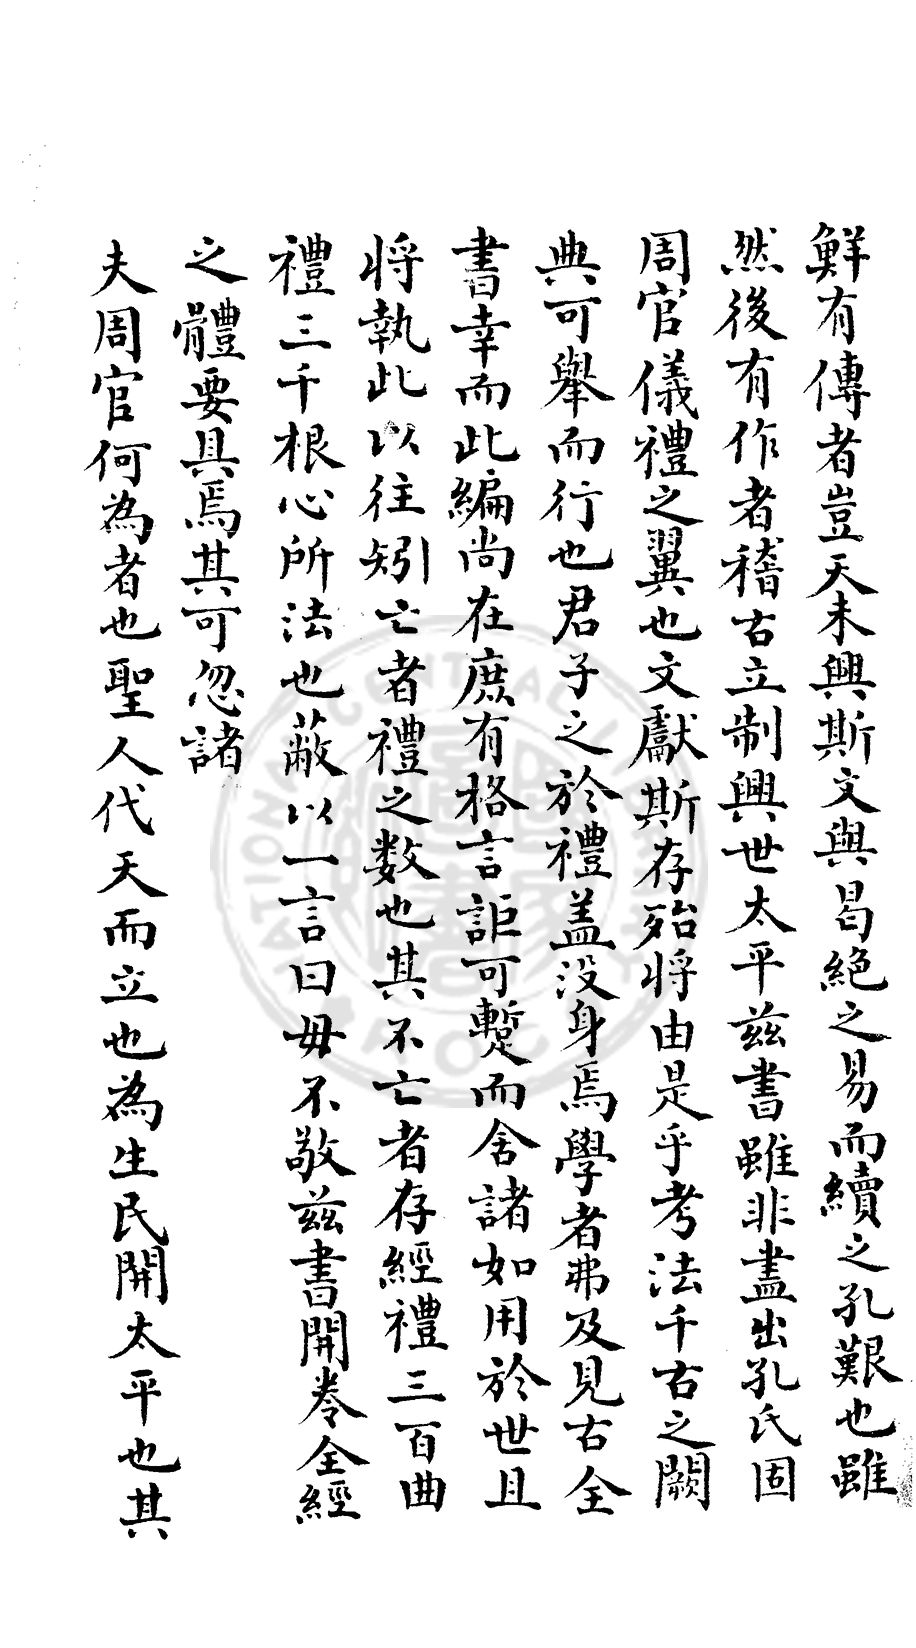 鮮有傳者豈天未興斯文與曷絕之易而續之孔艱也雖
然後有作者稽古立制興世太平茲書雖非盡出孔氏固
周官儀禮之翼也文獻斯存殆將由是乎考法千古之闕
典可舉而行也君子之於禮蓋沒身焉學者弗及見古全
書幸而此編尚在庶有格言詎可蹔而舍諸如用於世且
将執此以往矧亡者禮之数也其不亡者存經禮三百曲
禮三千根心所法也蔽以一言曰毋不敬茲書開卷全經
之體要具焉其可忽諸
夫周官何為者也聖人代天而立也為生民開太平也其
NATIONAL CENTRAL LIBRARY